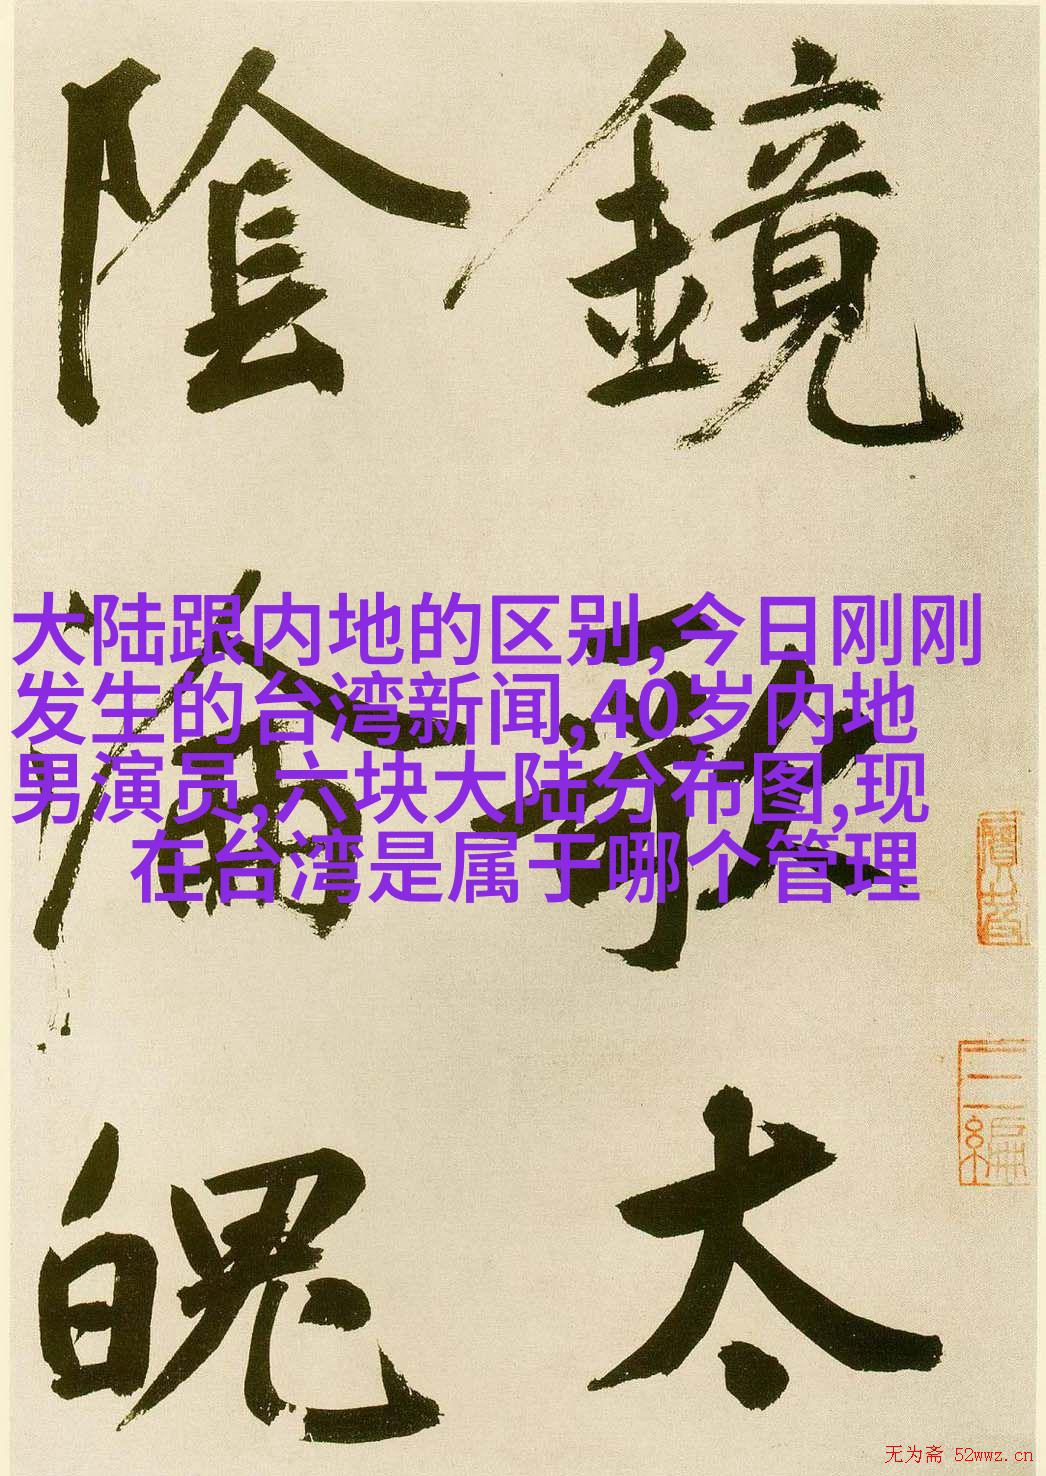 鏡
歌
太
陰
魄
大陆跟内地的区别,今日刚刚
发生的台湾新闻,40岁内地
男演员,六块大陆分布图,现
在台湾是属于哪个管理
无为斋 52wwz.cn